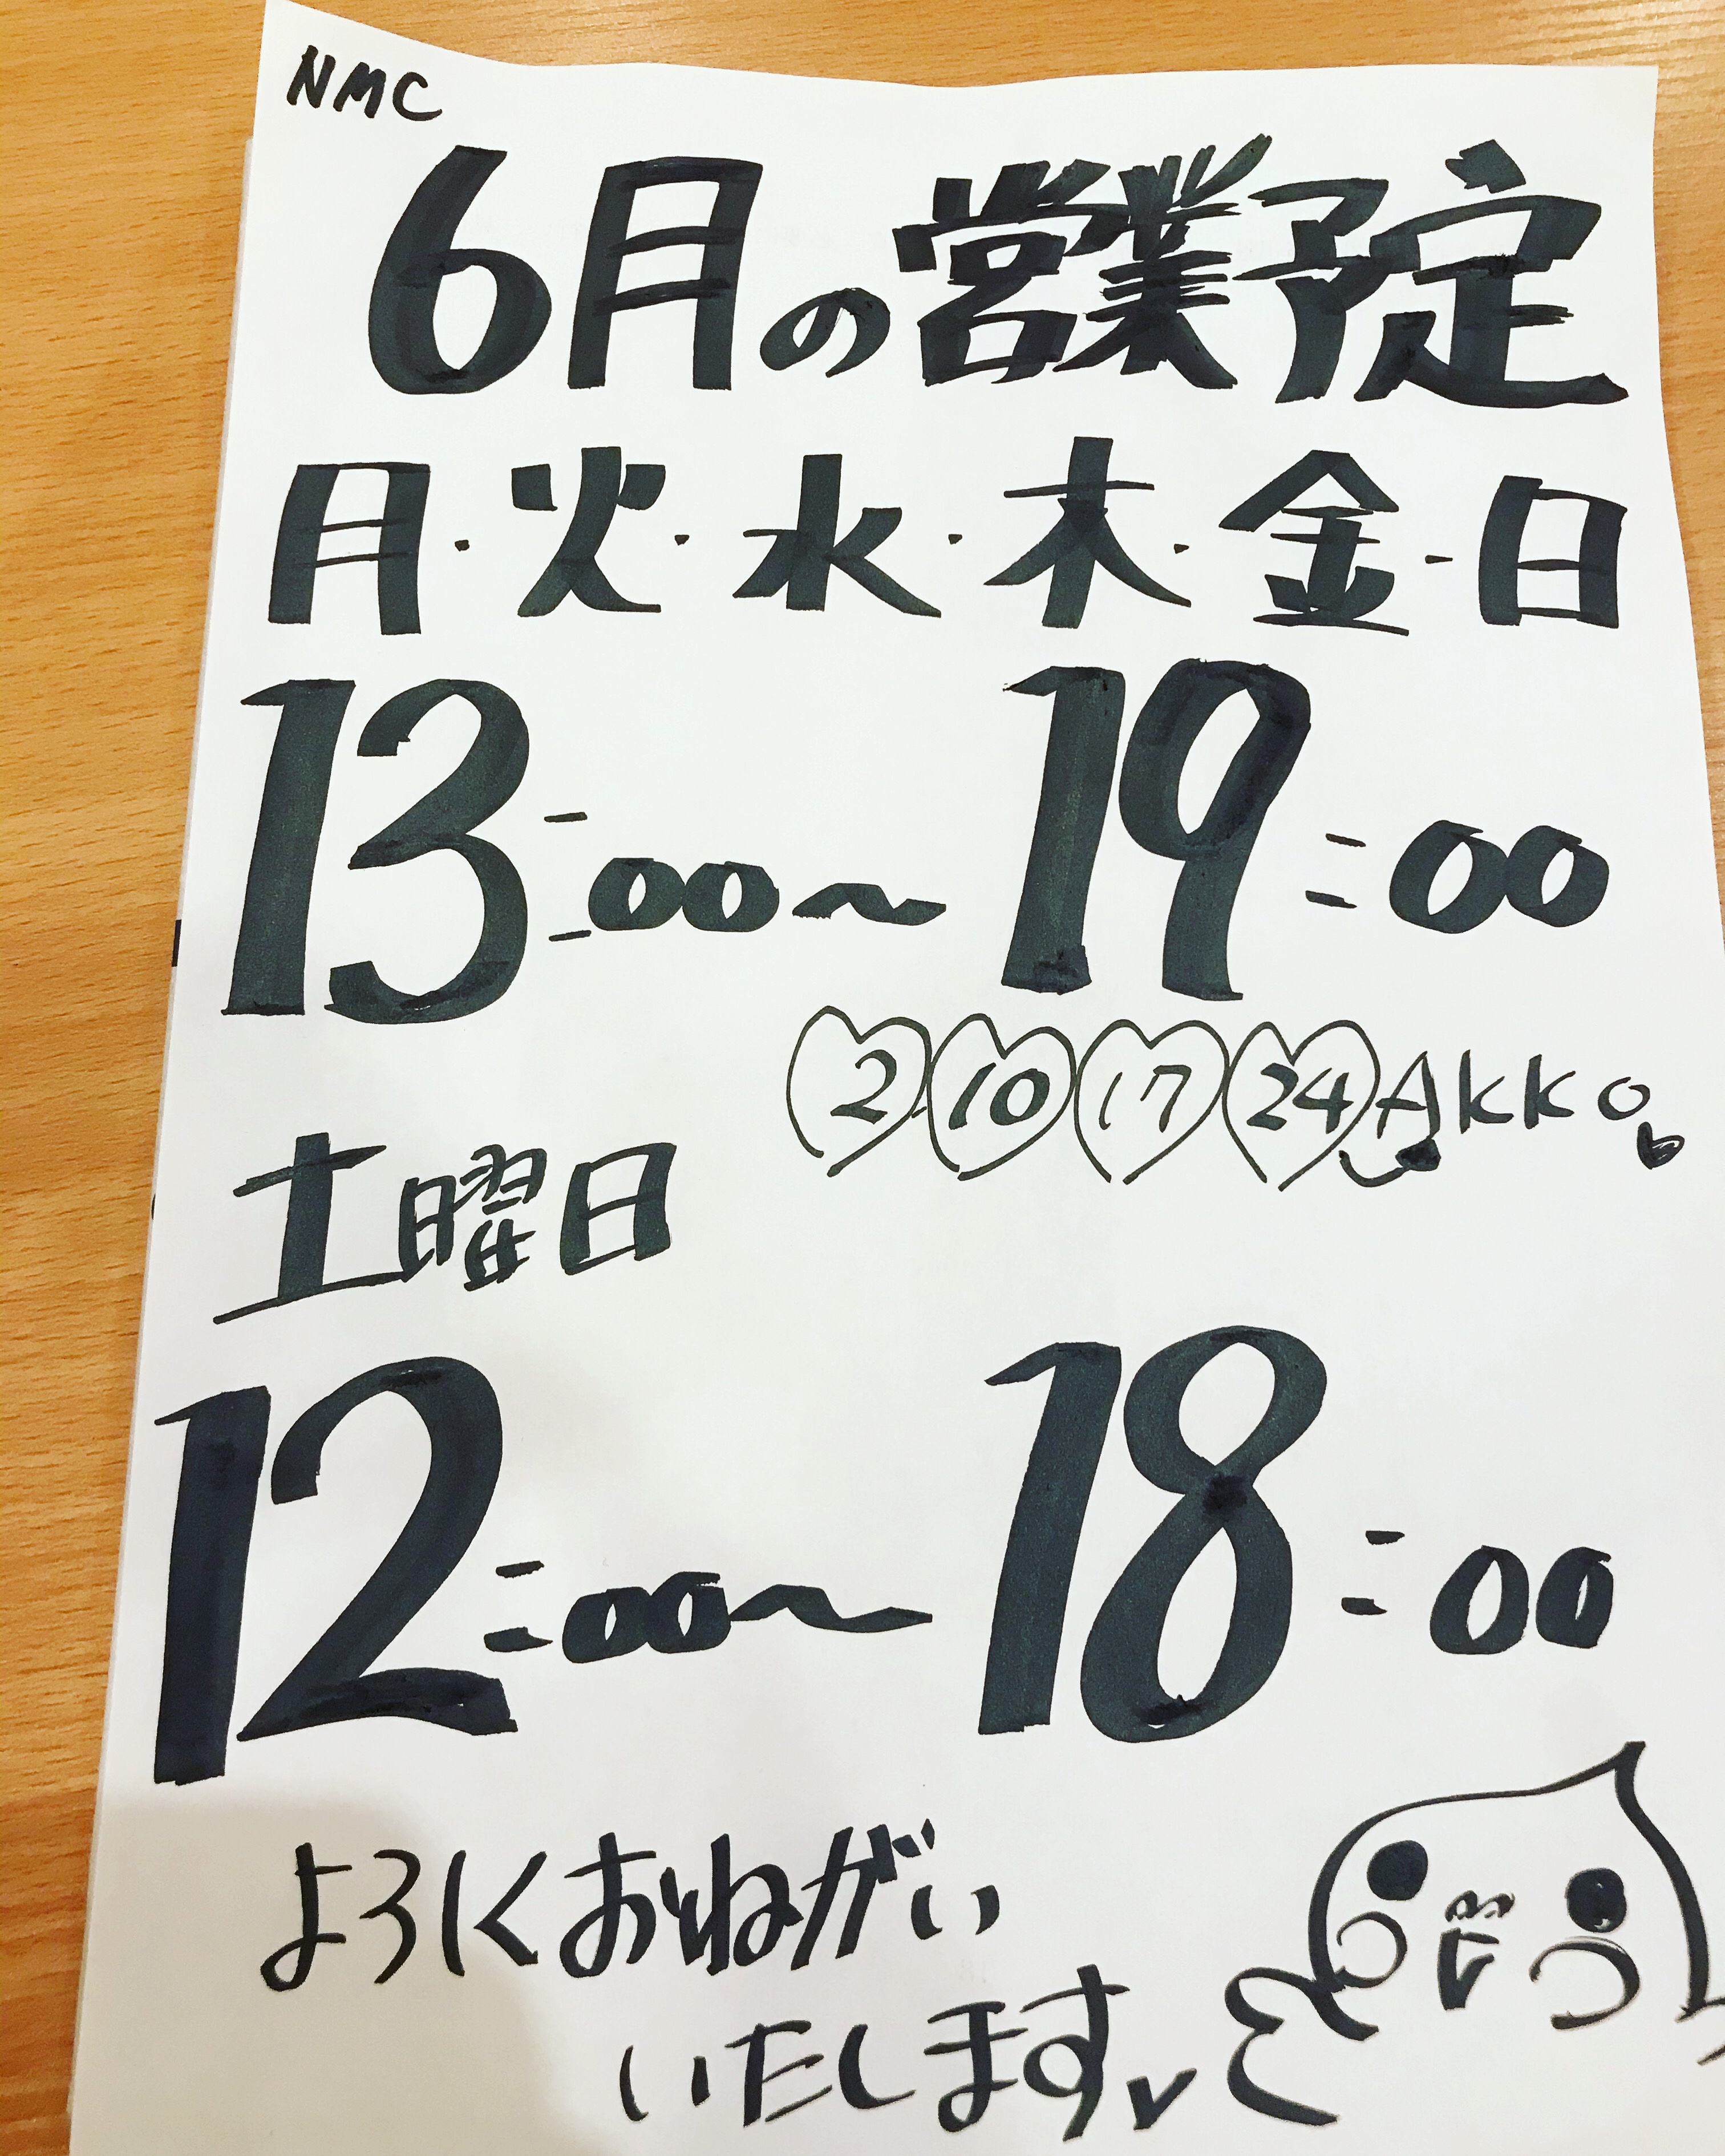 NMC
6月の営業予定
月・火・水・木・金・日
13:00〜19:00
2 10 17 24 AKKO
土曜日
12:00〜18:00
よろしくおねがい
いたします